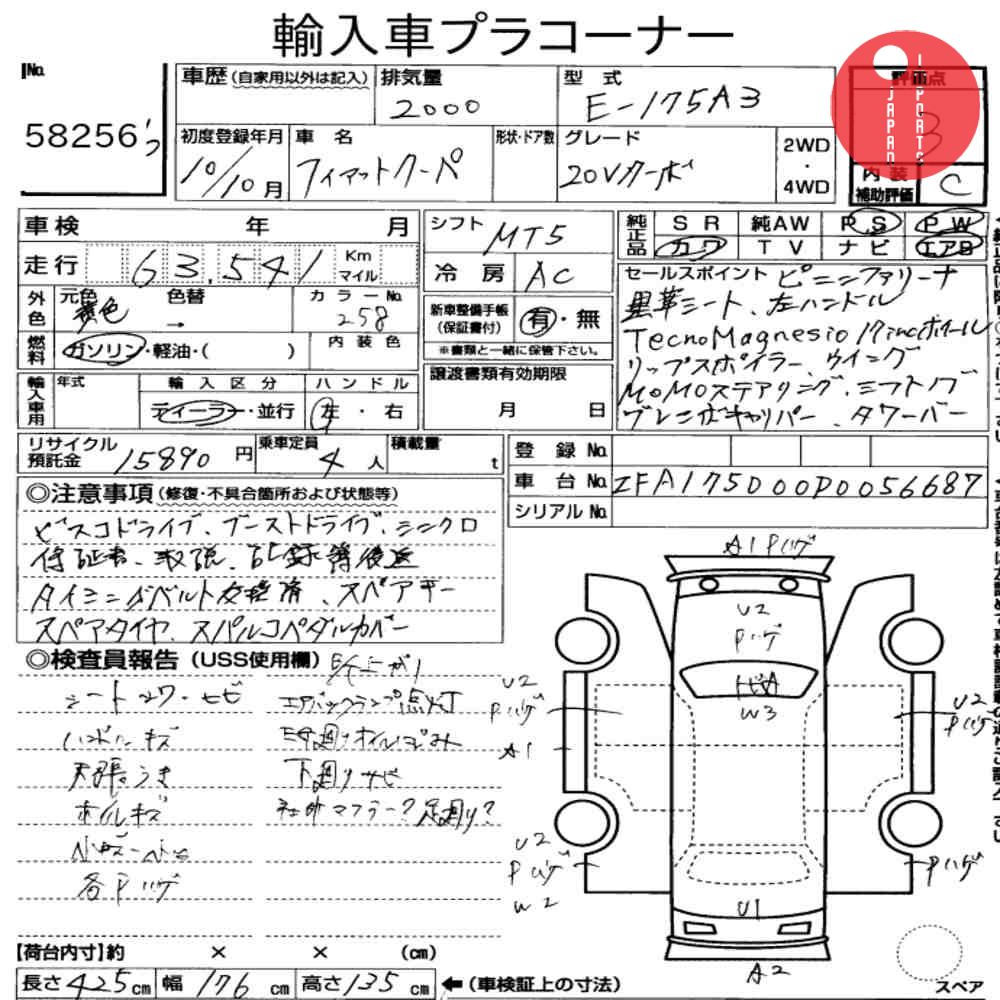 輸入車プラコーナー
No.
58256
車歴(自家用以外は記入)
排気量
2000
型式
E-175A3
評価点
3
JAPAN
IMPORTS
内装
補助評価
C
初度登録年月
10/10月
車名
フィアットクーペ
形状・ドア数
グレード
20Vターボ
2WD
・
4WD
車検 年 月
走行 63,541 Km マイル
外色 元色 黄色 色替 → カラーNo. 258
燃料 ガソリン・軽油・( ) 内装色
輸入車用 年式 輸入区分 ハンドル
ディーラー・並行 左・右
シフト MT5
冷房 AC
新車整備手帳(保証書付) 有・無
※書類と一緒に保管下さい。
譲渡書類有効期限
月 日
純正品 SR 純AW P.S P.W
カワ TV ナビ エアB
セールスポイント ピニンファリーナ
黒革シート、左ハンドル
TecnoMagnesio 17incホイール
リップスポイラー、ウイング
MOMOステアリング、シフトノブ
ブレンボキャリパー、タワーバー
リサイクル預託金 15890円
乗車定員 4人
積載量 t
登録No.
車台No. ZFA175000P0056687
シリアルNo.
◎注意事項(修復・不具合箇所および状態等)
ビスコドライブ、ブーストドライブ、シンクロ
保証書、取説、記録簿後送
タイミングベルト交換済、スペアキー
スペアタイヤ、スパルコペダルカバー
◎検査員報告(USS使用欄)
シートスワ・ヒビ
エアバックランプ点灯
ハンドルキズ
天張うき
下廻りサビ
ホイルキズ
社外マフラー?足廻り?
小キズ・ヘこ
各Pハゲ
A1 Pハゲ
U2
Pハゲ
トビA
W3
U2
Pハゲ
A1
U2
Pハゲ
U2
Pハゲ
W2
Pハゲ
U1
A2
スペア
【荷台内寸】約 × × (cm)
長さ 425cm 幅 176cm 高さ 135cm ←(車検証上の寸法)